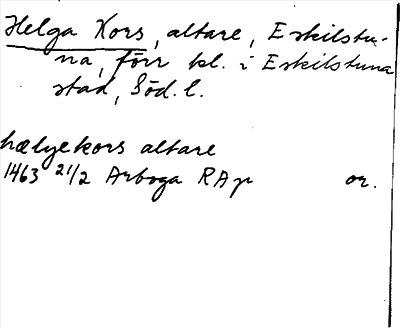 Helga Kors, altare, Eskilstu-
na, förr kl. i Eskilstuna
stad, Söd. l.
hælgekors altare
1463 21/2 Arboga RAp or.